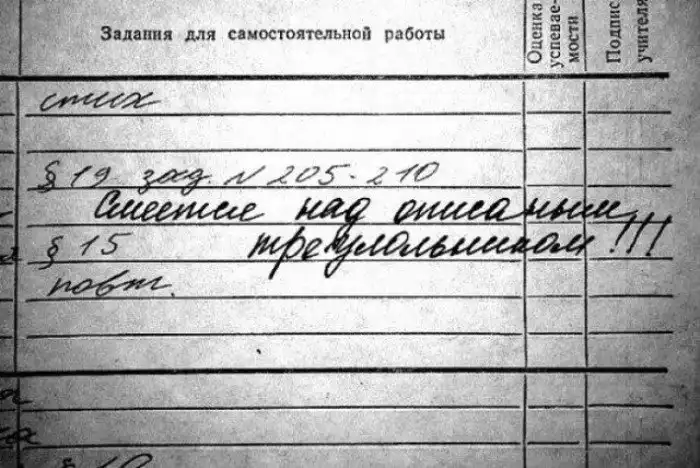 Задания для самостоятельной работы
Оценка успевае-
мости
Подпис
учителя
стих
§ 19 зад. N 205-210
Смеется над описаным
§ 15 треугольником!!!
повт.